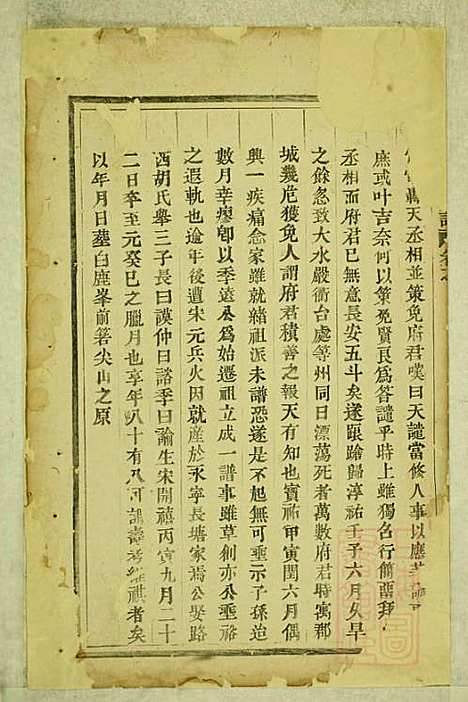 天丞相並策免府君嘆曰天譴當修人事以應
庶或叶吉奈何以策免賢良爲答譴乎時上雖獨名行簡䔥拜
丞相而府君已無意長安五斗矣遂踉蹌歸淳祐壬子六月久旱
之餘忽致大水嚴衢台處等州同日漂蕩死者萬數府君時寓郡
城幾危獲免人謂府君積善之報天有知也寳祐甲寅閏六月偶
興一疾痛念家雖就緒祖派未譜恐遂是不起無可垂示子孫迨
數月幸瘳卽以季遠公爲始遷祖立成一譜事雖草創亦公垂裕
之遐軌也逾年後遭宋元兵火因就産於永寧長塘家焉公娶路
西胡氏舉三子長曰謨仲曰諮季曰諭生宋開禧丙寅九月二十
二日卒至元癸巳之臘月也享年八十有八可謂壽考維祺者矣
以年月日墓白鹿峯前箬尖山之原